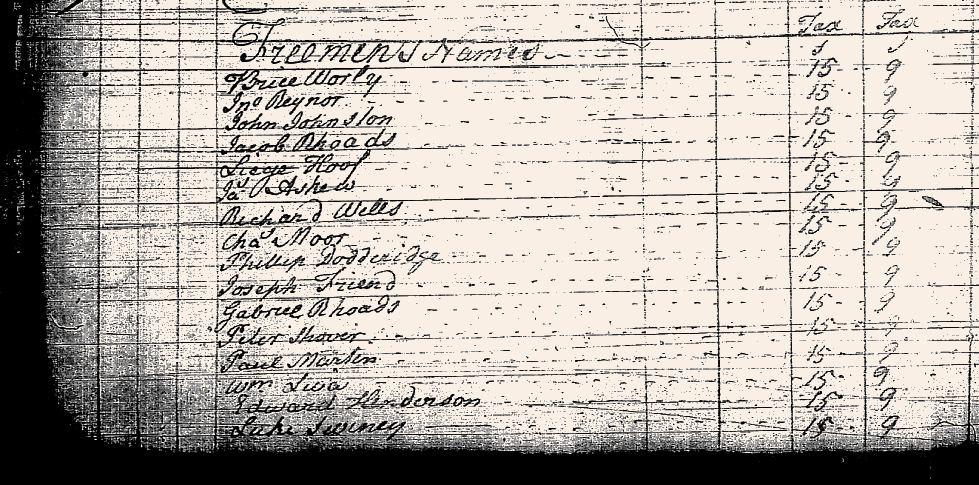 Tax Tax
Freemens Names
s s
Bruce Worly 15 9
Jno Reynor 15 9
John Johnston 15 9
Jacob Rhoads 15 9
Hoof 15 9
Jas Askew 15 9
Richard Wells 15 9
Chas Moor 15 9
Phillip Dodderidge 15 9
Joseph Friend 15 9
Gabriel Rhoads 15 9
Peter Shover 15 9
Paul Martin 15 9
Wm 15 9
Edward Henderson 15 9
Luke 15 9